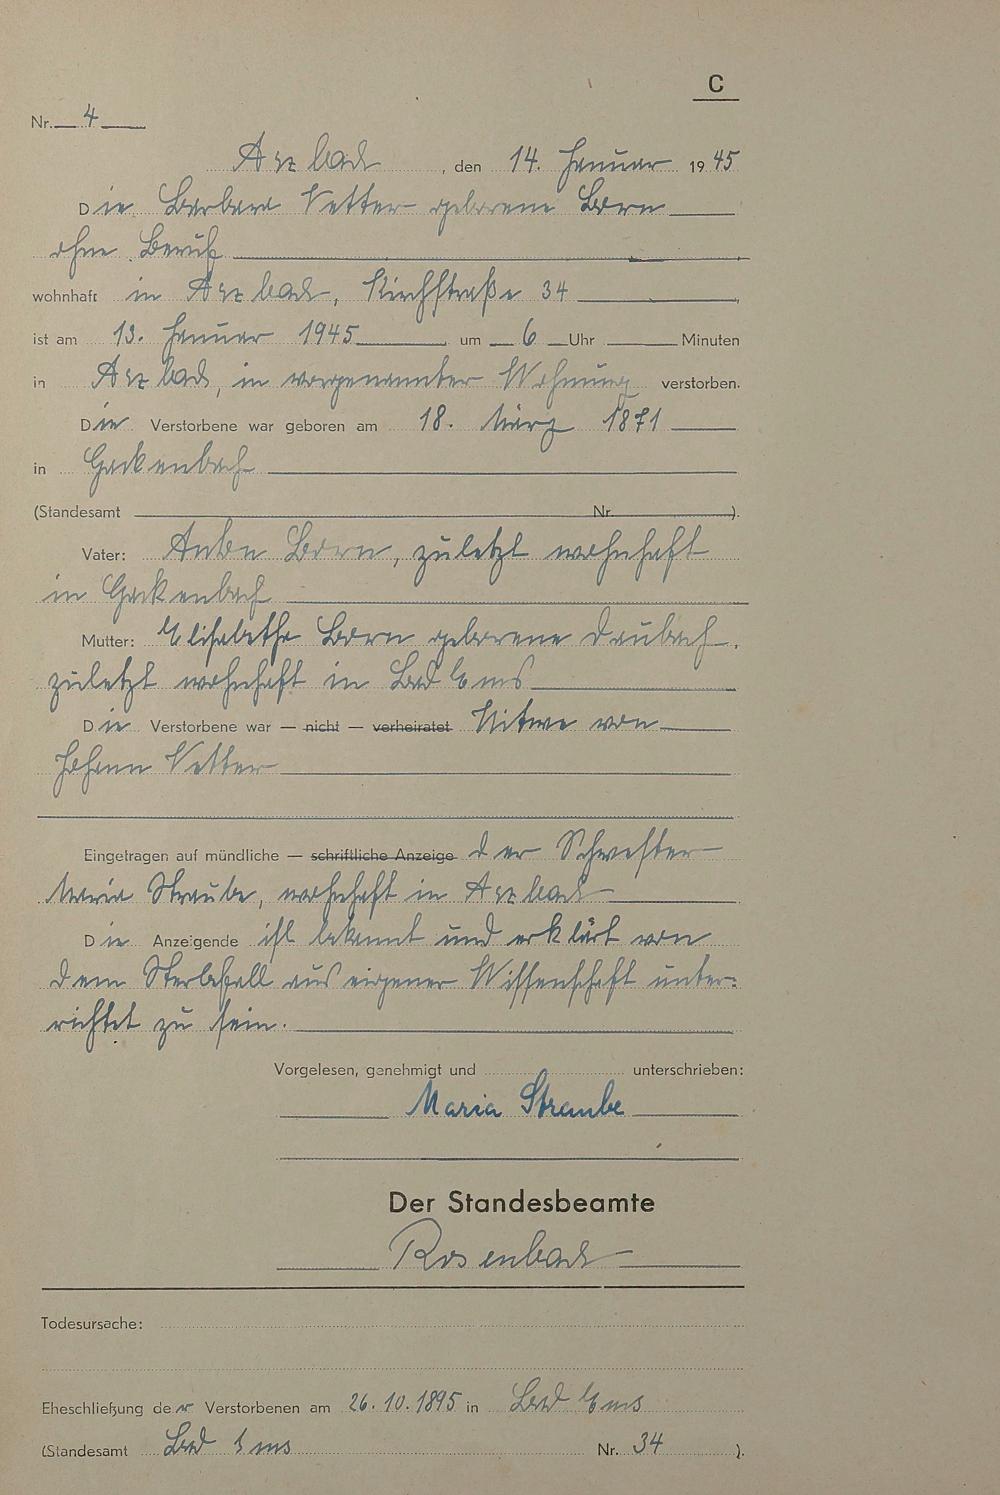 C
Nr. 4
Arzbach, den 14. Januar 1945
Die Barbara Vetter geborene Born
ohne Beruf
wohnhaft in Arzbach, Kirchstraße 34
ist am 13. Januar 1945 um 6 Uhr Minuten
in Arzbach, in vorgenannter Wohnung verstorben.
Die Verstorbene war geboren am 18. März 1871
in Gackenbach
(Standesamt Nr. ).
Vater: Anton Born, zuletzt wohnhaft
in Gackenbach
Mutter: Elisabetha Born geborene Daubach,
zuletzt wohnhaft in Bad Ems
Die Verstorbene war — nicht — verheiratet Witwe von
Johann Vetter
Eingetragen auf mündliche — schriftliche Anzeige der Schwester
Maria Straube, wohnhaft in Arzbach
Die Anzeigende ist bekannt und erklärt von
dem Sterbefall aus eigener Wissenschaft unter-
richtet zu sein.
Vorgelesen, genehmigt und unterschrieben:
Maria Straube
Der Standesbeamte
Rosenbach
Todesursache:
Eheschließung der Verstorbenen am 26.10.1895 in Bad Ems
(Standesamt Bad Ems Nr. 34 ).